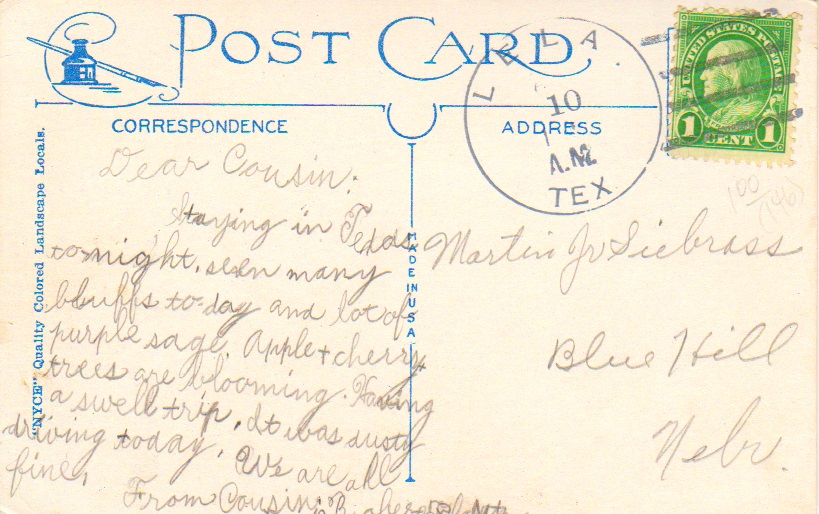 POST CARD
CORRESPONDENCE
ADDRESS
"NYCE" Quality Colored Landscape Locals.
MADE IN U S A
LELA.
10
A.M.
TEX
UNITED STATES POSTAGE
1 CENT 1
Dear Cousin;
Staying in Texas
to-night. seen many
bluffs to-day and lot of
purple sage. Apple + cherry
trees are blooming. Having
a swell trip. It was dusty
driving today. We are all
fine.
From Cousin
Martin Jr Siebrass
Blue Hill
Nebr.